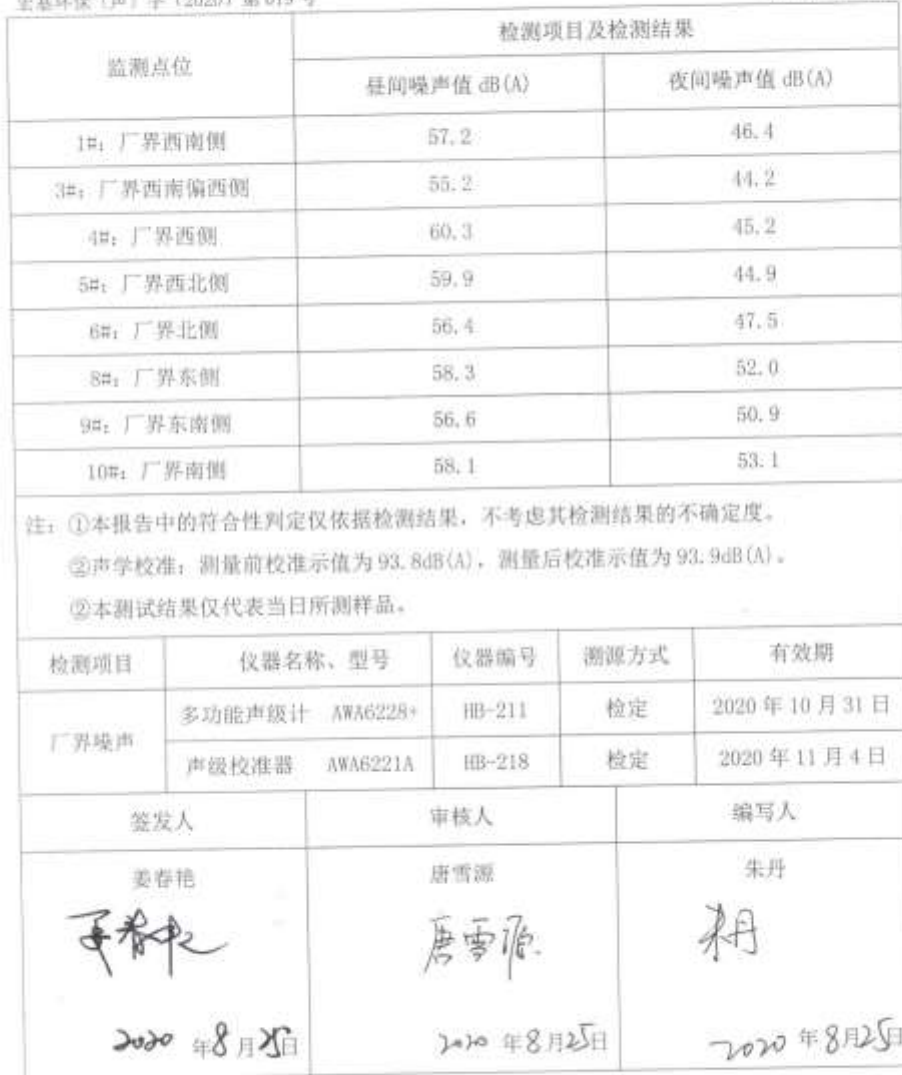 监测点位
检测项目及检测结果
昼间噪声值 dB(A) 夜间噪声值 dB(A)
1#：厂界西南侧 57.2 46.4
3#：厂界西南偏西侧 55.2 44.2
4#：厂界西侧 60.3 45.2
5#：厂界西北侧 59.9 44.9
6#：厂界北侧 56.4 47.5
8#：厂界东侧 58.3 52.0
9#：厂界东南侧 56.6 50.9
10#：厂界南侧 58.1 53.1
注：①本报告中的符合性判定仅依据检测结果，不考虑其检测结果的不确定度。
②声学校准：测量前校准示值为 93.8dB(A)，测量后校准示值为 93.9dB(A)。
②本测试结果仅代表当日所测样品。
检测项目 仪器名称、型号 仪器编号 溯源方式 有效期
厂界噪声
多功能声级计 AWA6228+ HB-211 检定 2020 年 10 月 31 日
声级校准器 AWA6221A HB-218 检定 2020 年 11 月 4 日
签发人 审核人 编写人
姜春艳 唐雪源 朱丹
唐雪源 朱丹
2020 年 8 月 25 日 2020 年 8 月 25 日 2020 年 8 月 25 日